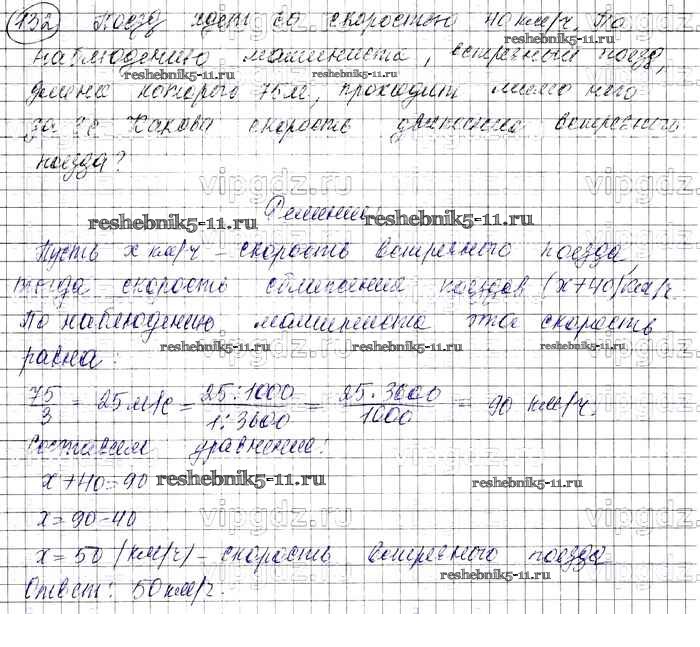 132 Поезд идет со скоростью 40 км/ч. По
наблюдению машиниста, встречный поезд,
reshebnik5-11.ru reshebnik5-11.ru
длина которого 75 м, проходит мимо него
за 3 с. Какова скорость движения встречного
поезда?
vipgdz.ru
Решение:
reshebnik5-11.ru reshebnik5-11.ru
Пусть x км/ч - скорость встречного поезда,
тогда скорость сближения поездов (x+40) км/ч.
По наблюдению машиниста эта скорость
равна:
reshebnik5-11.ru reshebnik5-11.ru reshebnik5-11.ru
75/3 = 25 м/с = 25:1000/1:3600 = 25·3600/1000 = 90 км/ч.
Составим уравнение:
x+40=90
reshebnik5-11.ru reshebnik5-11.ru
x=90-40
vipgdz.ru
x=50 (км/ч) - скорость встречного поезда
reshebnik5-11.ru
Ответ: 50 км/ч.